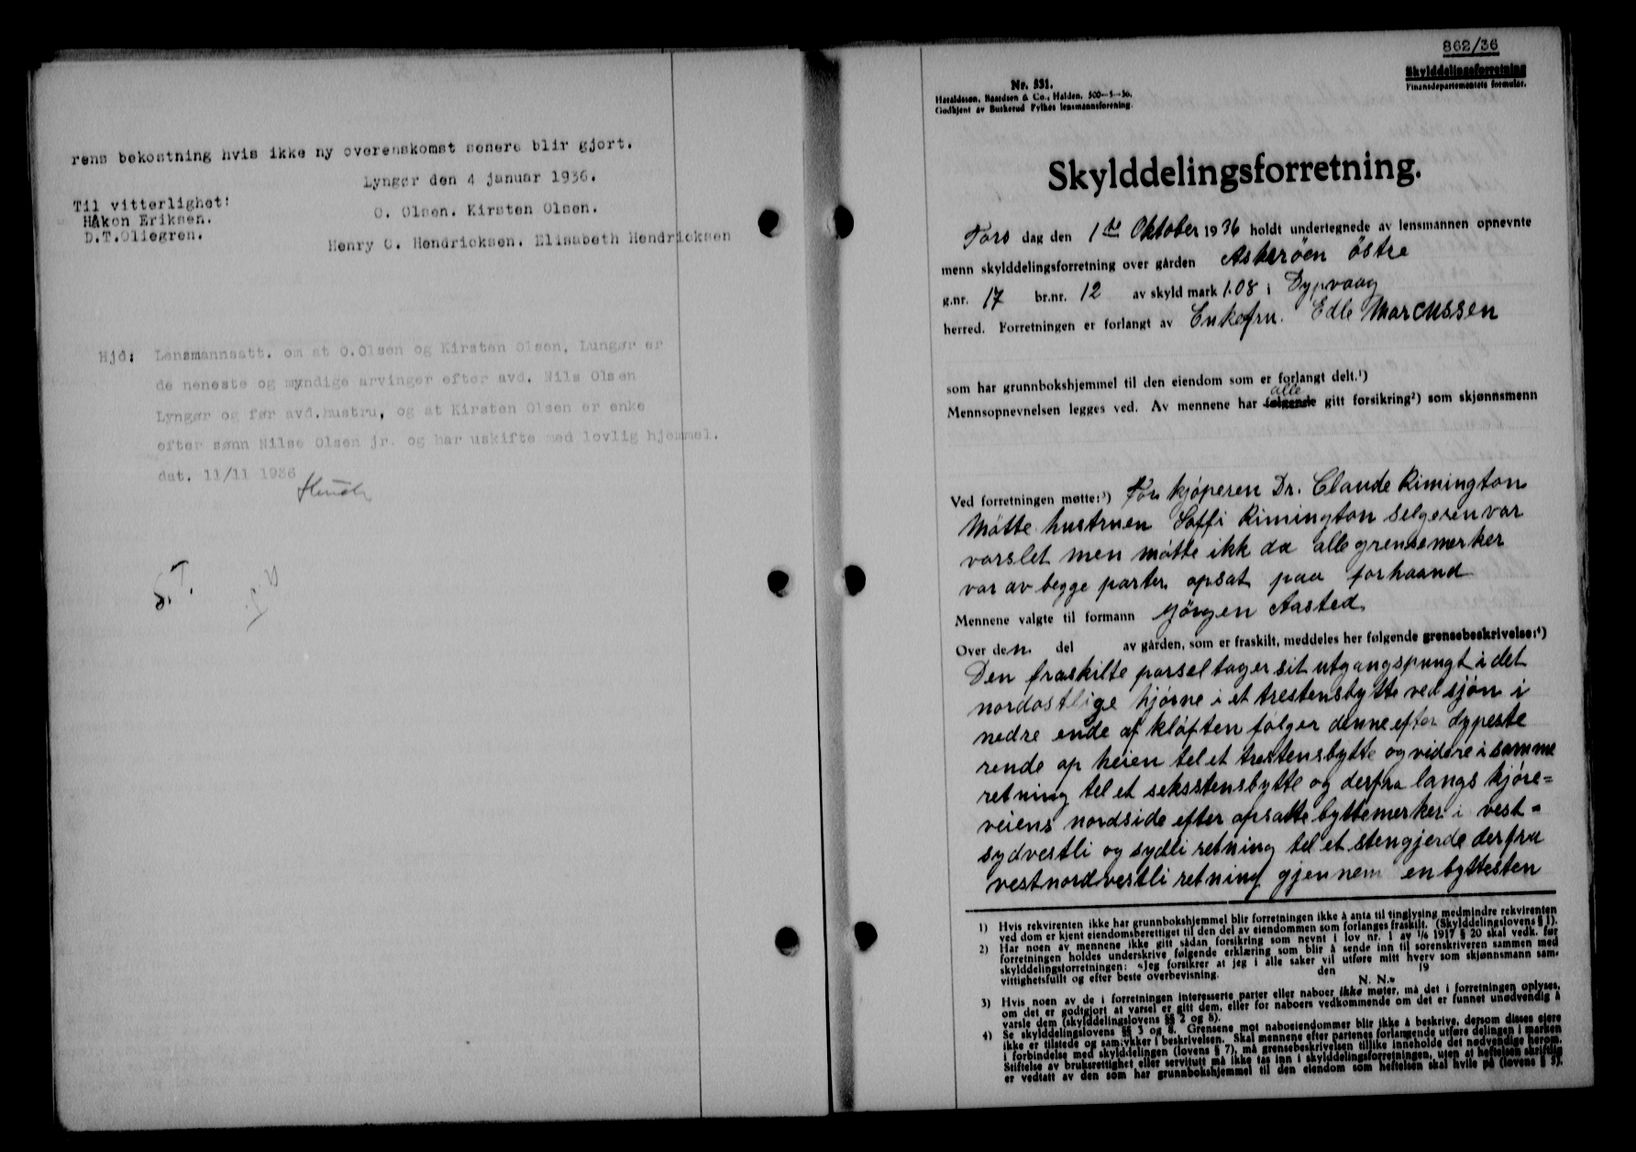 rens bekostning hvis ikke ny overenskomst senere blir gjort.
Lyngør den 4 januar 1936.
Til vitterlighet:
Håkon Eriksen.
D.T.Oliegren.
O. Olsen. Kirsten Olsen.
Henry O. Hendricksen. Elisabeth Hendricksen
Hjd: Lensmannsatt. om at O.Olsen og Kirsten Olsen, Lungør er
de neneste og myndige arvinger efter avd. Nils Olsen
Lyngør og før avd.hustru, og at Kirsten Olsen er enke
efter sønn Nilse Olsen jr. og har uskifte med lovlig hjemmel.
dat. 11/11 1936
S.T.
862/36
Skylddelingsforretning
Finansdepartementets formular.
Nr. 531.
Haraldssøn, Raardsen & Co., Halden. 500-5-36.
Godkjent av Buskerud Fylkes lensmannsforening.
Skylddelingsforretning.
Tors dag den 1ste Oktober 1936 holdt undertegnede av lensmannen opnevnte
menn skylddelingsforretning over gården Askerøen östre
g.nr. 17 br.nr. 12 av skyld mark 1.08 i Dypvaag
herred. Forretningen er forlangt av Enkefru. Edle Marcussen
som har grunnbokshjemmel til den eiendom som er forlangt delt.¹)
alle
Mennsopnevnelsen legges ved. Av mennene har følgende gitt forsikring²) som skjønnsmenn
Ved forretningen møtte:³) For kjöperen Dr. Claude Rimington
Mötte hustruen Soffi Rimington selgeren var
varslet men mötte ikk da alle grensemerker
var av begge parter opsat paa forhaand
Mennene valgte til formann Jörgen Aasted
Over den del av gården, som er fraskilt, meddeles her følgende grensebeskrivelse:⁴)
Den fraskilte parsel tager sit utgangspungt i det
nordostlige hjörne i et trestensbytte ved sjön i
nedre ende af klöften fölger denne efter dypeste
rende op heien tel et trestensbytte og videre i samme
retning tel et seksstensbytte og derfra langs kjöre=
veiens nordside efter opsatte byttemerker i vest=
sydvestli og sydli retning tel et stengjerde derfra
vestnordvestli retning gjennem en byttesten
1) Hvis rekvirenten ikke har grunnbokshjemmel blir forretningen ikke å anta til tinglysing medmindre rekvirenten
ved dom er kjent eiendomsberettiget til den del av eiendommen som forlanges fraskilt. (Skylddelingslovens § 1).
2) Har noen av mennene ikke gitt sådan forsikring som nevnt i lov nr. 1 av 1/6 1917 § 20 skal vedk. før
forretningen holdes underskrive følgende erklæring som blir å sende inn til sorenskriveren sammen med
skylddelingsforretningen: «Jeg forsikrer at jeg i alle saker vil utføre mitt hverv som skjønnsmann sam-
vittighetsfullt og efter beste overbevisning. den 19
N. N.»
3) Hvis noen av de i forretningen interesserte parter eller naboer ikke møter, må det i forretningen oplyses,
om det er godtgjort at varsel er gitt dem, eller for naboers vedkommende om det er funnet unødvendig å
varsle dem (skylddelingslovens §§ 2 og 8).
4) Se skylddelingslovens §§ 3 og 8. Grensene mot naboeiendommer blir ikke å beskrive, dersom disses eiere
ikke er tilstede og samtykker i beskrivelsen. Skal mennene efter partenes forlangende utføre delingen i marken
i forbindelse med skylddelingen (lovens § 7), må grensebeskrivelsen tillike inneholde det nødvendige herom.
Stiftelse av bruksrettighet eller servitutt må ikke tas inn i skylddelingsforretningen, uten at heftelsen skriftlig
er vedtatt av den som har grunnbokshjemmel til den eiendom som heftelsen skal hvile på (lovens § 3).